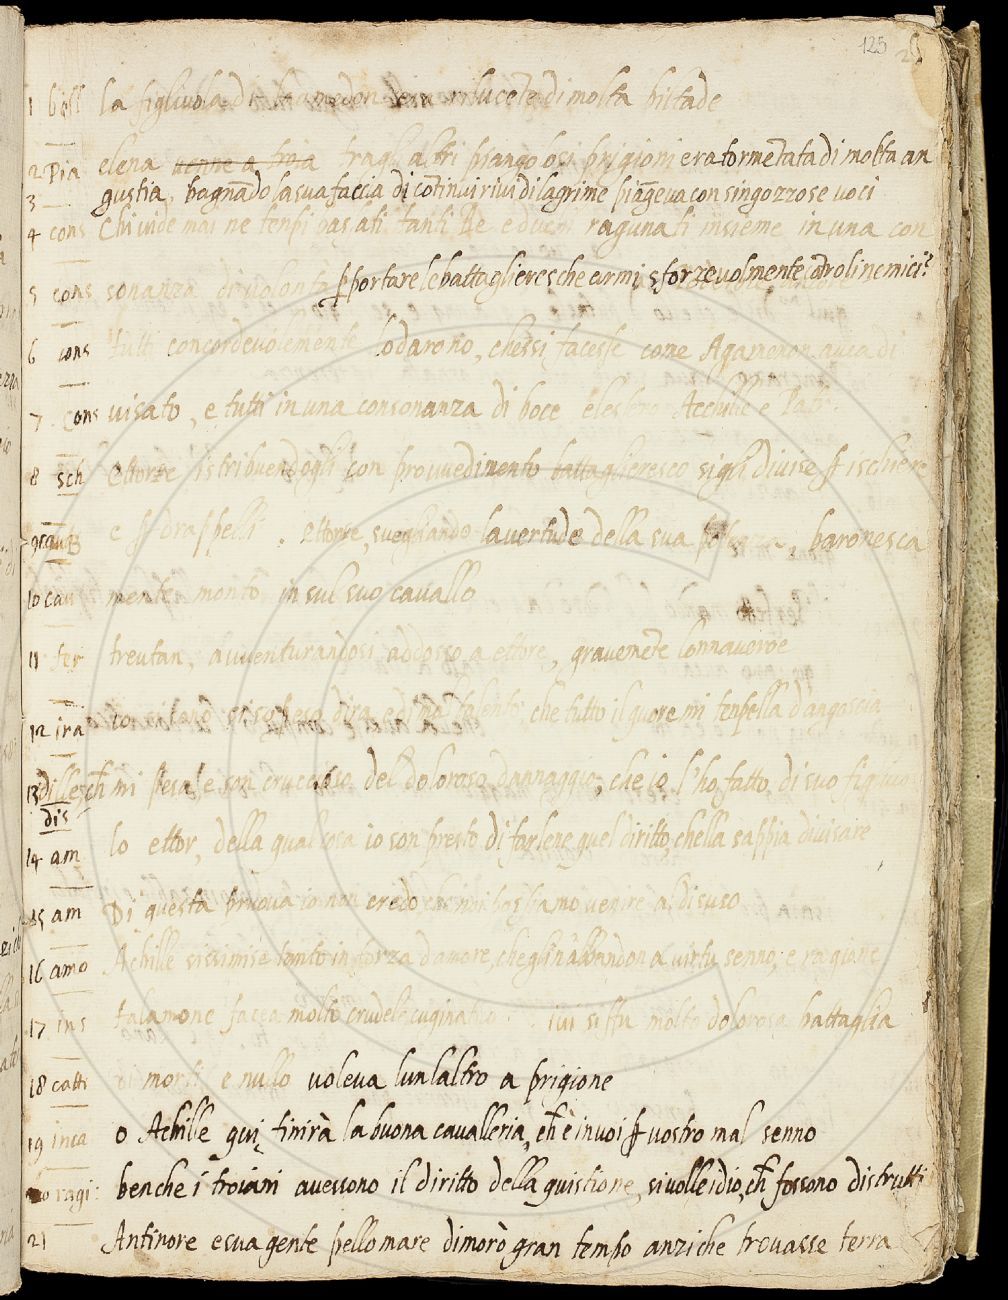 125
1 bell La figliuola di Laumedon era rilucete di molta biltade
2 Pia elena venne a troia tragli altri piangolosi prigioni era tormētata di molta an
3 gustia, bagnādo la sua faccia di cōtinui rivi di lagrime piāgeva con singozzose voci
4 cons Chi vide mai ne tenpi passati tanti Re e duchi ragunati insieme in una con
5 cons sonanza di volontà ꝑ portare le battaglieresche armi sforzevolmente cōtro li nemici?
6 cons tutti concordevolemente lodarono, chessi facesse come Agamenon avea di
7 cons visato, e tutti in una consonanza di boce elessero Acchille e
8 sch Ettorre istribuendogli con provvedimento battaglieresco sigli divise ꝑ ischiere
9 e ꝑ drappelli. Ettorre, svegliando la vertude della sua baronesca
10 cav mente montò in sul suo cavallo
11 fer treutan, avventurandosi addosso a ettore, gravemēte lonnaveroe
12 ira dira e di mal talento, che tutto il quore mi tenpella dangoscia
13 dille, ch̄ mi pesa, e son cruccioso del doloroso dannaggio, che io l'ho fatto di suo figliuo
dis
14 am lo ettor, della qual cosa io son presto di farlene quel diritto, chella sappia divisare
15 am Di questa pruova io non credo che noi possiamo venire al disuso
16 amo Achille sissimise tanto in forza d'amore, che gli n'abbandona virtu senno, e ragione
17 ins talamone facea molto crudele ivi si fu molto dolorosa battaglia
18 catti di morti e nullo voleva lun laltro a prigione
19 inca o Achille qui finirà la buona cavalleria, ch̄ è in voi ꝑ vostro mal senno
20 ragi benche i troiani avessono il diritto della quistione, si volle idio, ch̄ fossono distrutti
21 Antinore e sua gente pello mare dimorò gran tempo anzi che trovasse terra